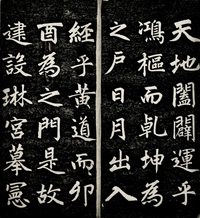 天地闔闢運乎
鴻樞而乹坤為
之戶日月出入
經乎黃道而卯
酉為之門是故
建設琳宮摹憲